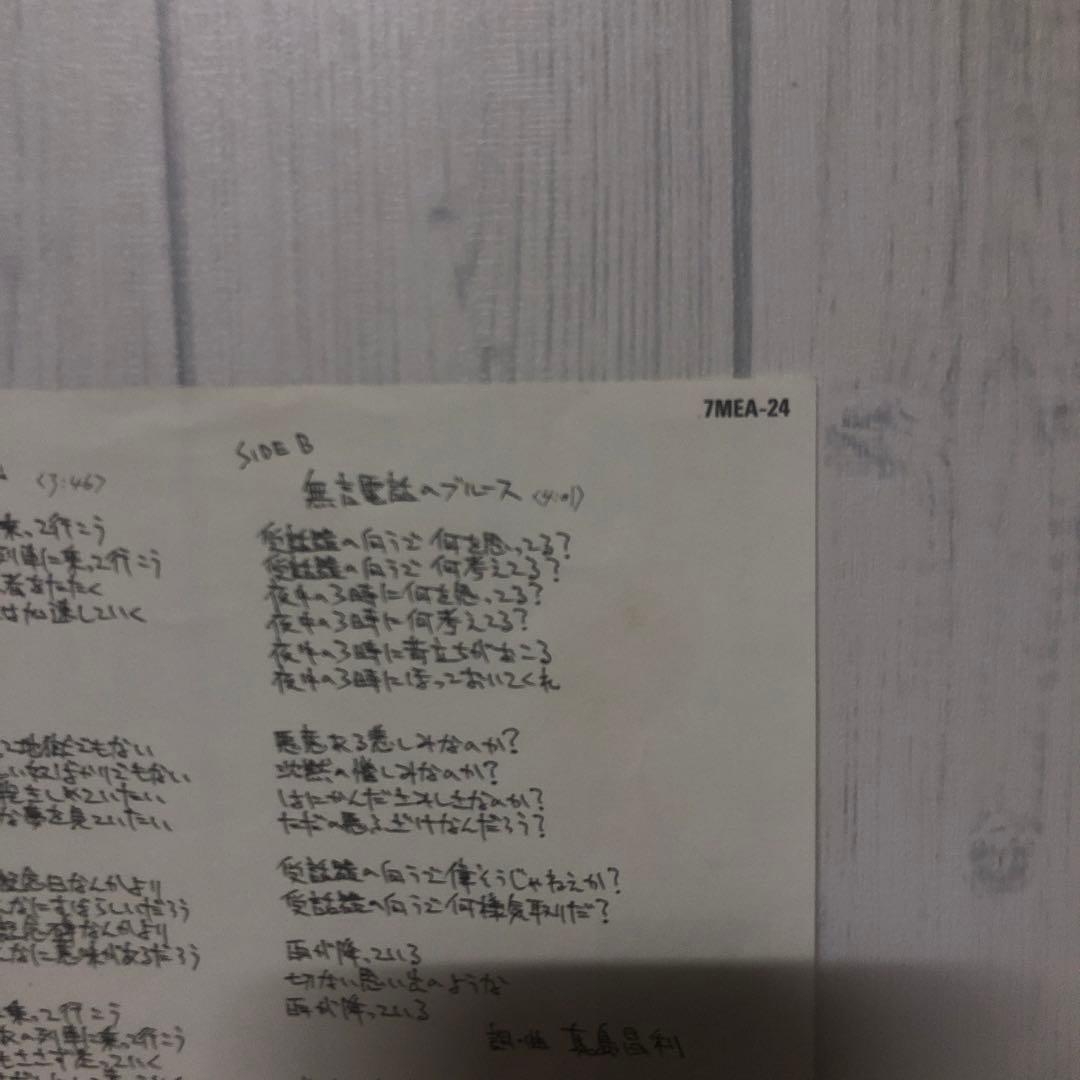 7MEA-24
<3:46>
乗って行こう
列車に乗って行こう
をたたく
加速していく
地獄でもない
ばかりでもない
をしめていたい
な夢を見ていたい
記念日なんかより
んなにすばらしいだろう
記念碑なんかより
んなに意味があるだろう
乗って行こう
の列車に乗って行こう
もささず走っていく
SIDE B
無言電話のブルース <4:01>
受話器の向うで 何を思ってる?
受話器の向うで 何考えてる?
夜中の3時に何を思ってる?
夜中の3時に何考えてる?
夜中の3時に苛立ちがおこる
夜中の3時にほっておいてくれ
悪意ある悲しみなのか?
沈黙の憎しみなのか?
はにかんださみしさなのか?
ただの悪ふざけなんだろう?
受話器の向うで偉そうじゃねえか?
受話器の向うで何様気取りだ?
雨が降っている
切ない思い出のような
雨が降っている
詞・曲 真島昌利